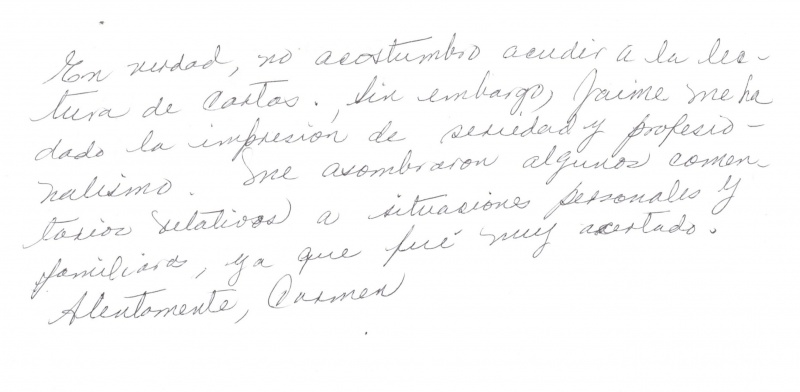 En verdad, no acostumbro acudir a la lec-
tura de cartas. Sin embargo, Jaime me ha
dado la impresión de seriedad y profesio-
nalismo. Me asombraron algunos comen-
tarios relativos a situaciones personales y
familiares, ya que fué muy acertado.
Atentamente, Carmen